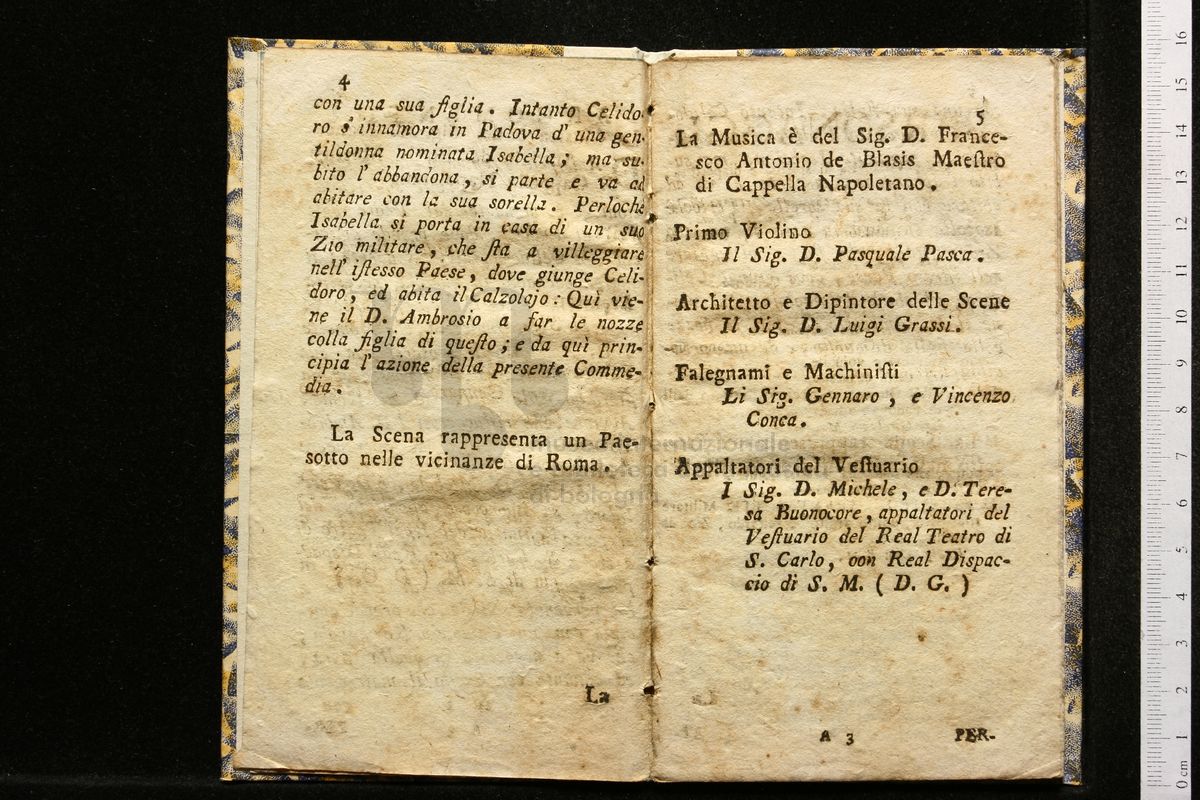 4
con una sua figlia. Intanto Celido-
ro s'innamora in Padova d'una gen-
tildonna nominata Isabella; ma su-
bito l'abbandona, si parte e va ad
abitare con la sua sorella. Perlochè
Isabella si porta in casa di un suo
Zio militare, che sta a villeggiare
nell'istesso Paese, dove giunge Celi-
doro, ed abita il Calzolajo: Quì vie-
ne il D. Ambrosio a far le nozze
colla figlia di questo; e da quì prin-
cipia l'azione della presente Comme-
dia.
La Scena rappresenta un Pae-
sotto nelle vicinanze di Roma.
La
5
La Musica è del Sig. D. France-
sco Antonio de Blasis Maestro
di Cappella Napoletano.
Primo Violino
Il Sig. D. Pasquale Pasca.
Architetto e Dipintore delle Scene
Il Sig. D. Luigi Grassi.
Falegnami e Machinisti
Li Sig. Gennaro, e Vincenzo
Conca.
Appaltatori del Vestuario
I Sig. D. Michele, e D. Tere-
sa Buonocore, appaltatori del
Vestuario del Real Teatro di
S. Carlo, oon Real Dispac-
cio di S. M. ( D. G. )
A 3
PER-
16
15
14
13
12
11
10
9
8
7
6
5
4
3
2
1
0 cm